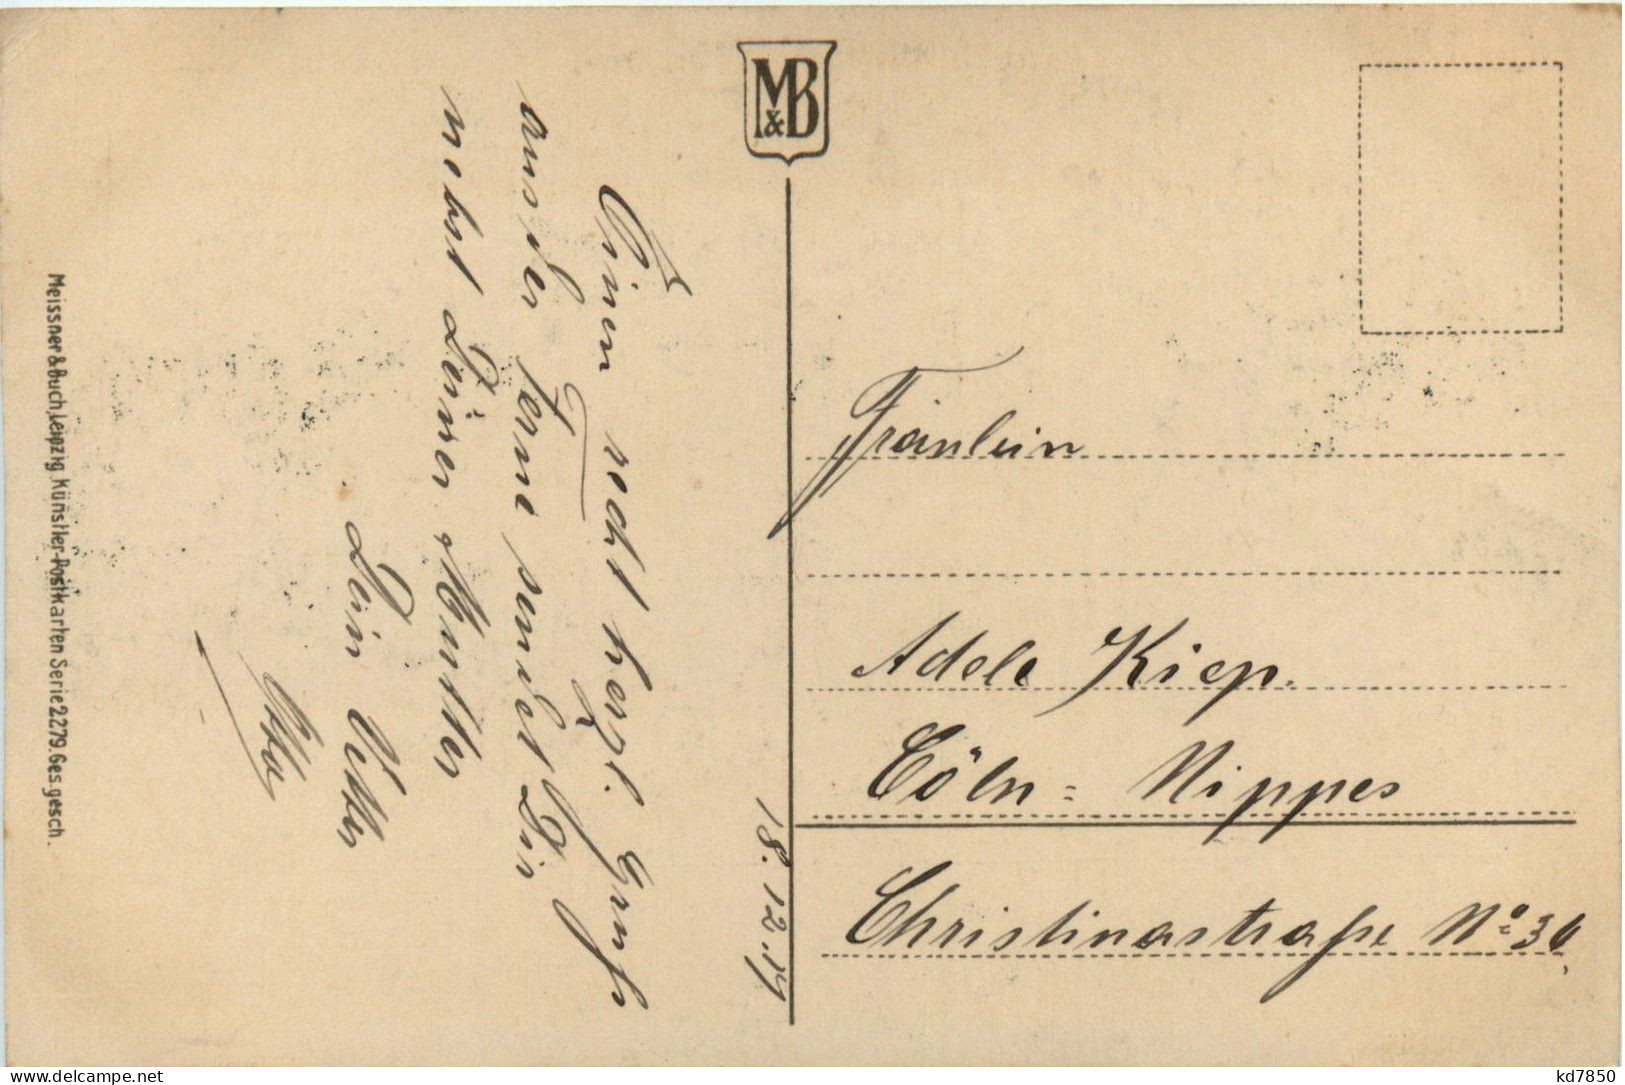 M&B
Einen recht herzl. Gruß
aus der Ferne sendet Dir
nebst Deiner Mutter
Dein Vetter
Otto
18.12.19
Fräulein
Adele Kiep.
Cöln=Nippes
Christinastraße No 36
Meissner & Buch, Leipzig, Künstler-Postkarten Serie 2279. Ges. gesch.
www.delcampe.net
kd7850